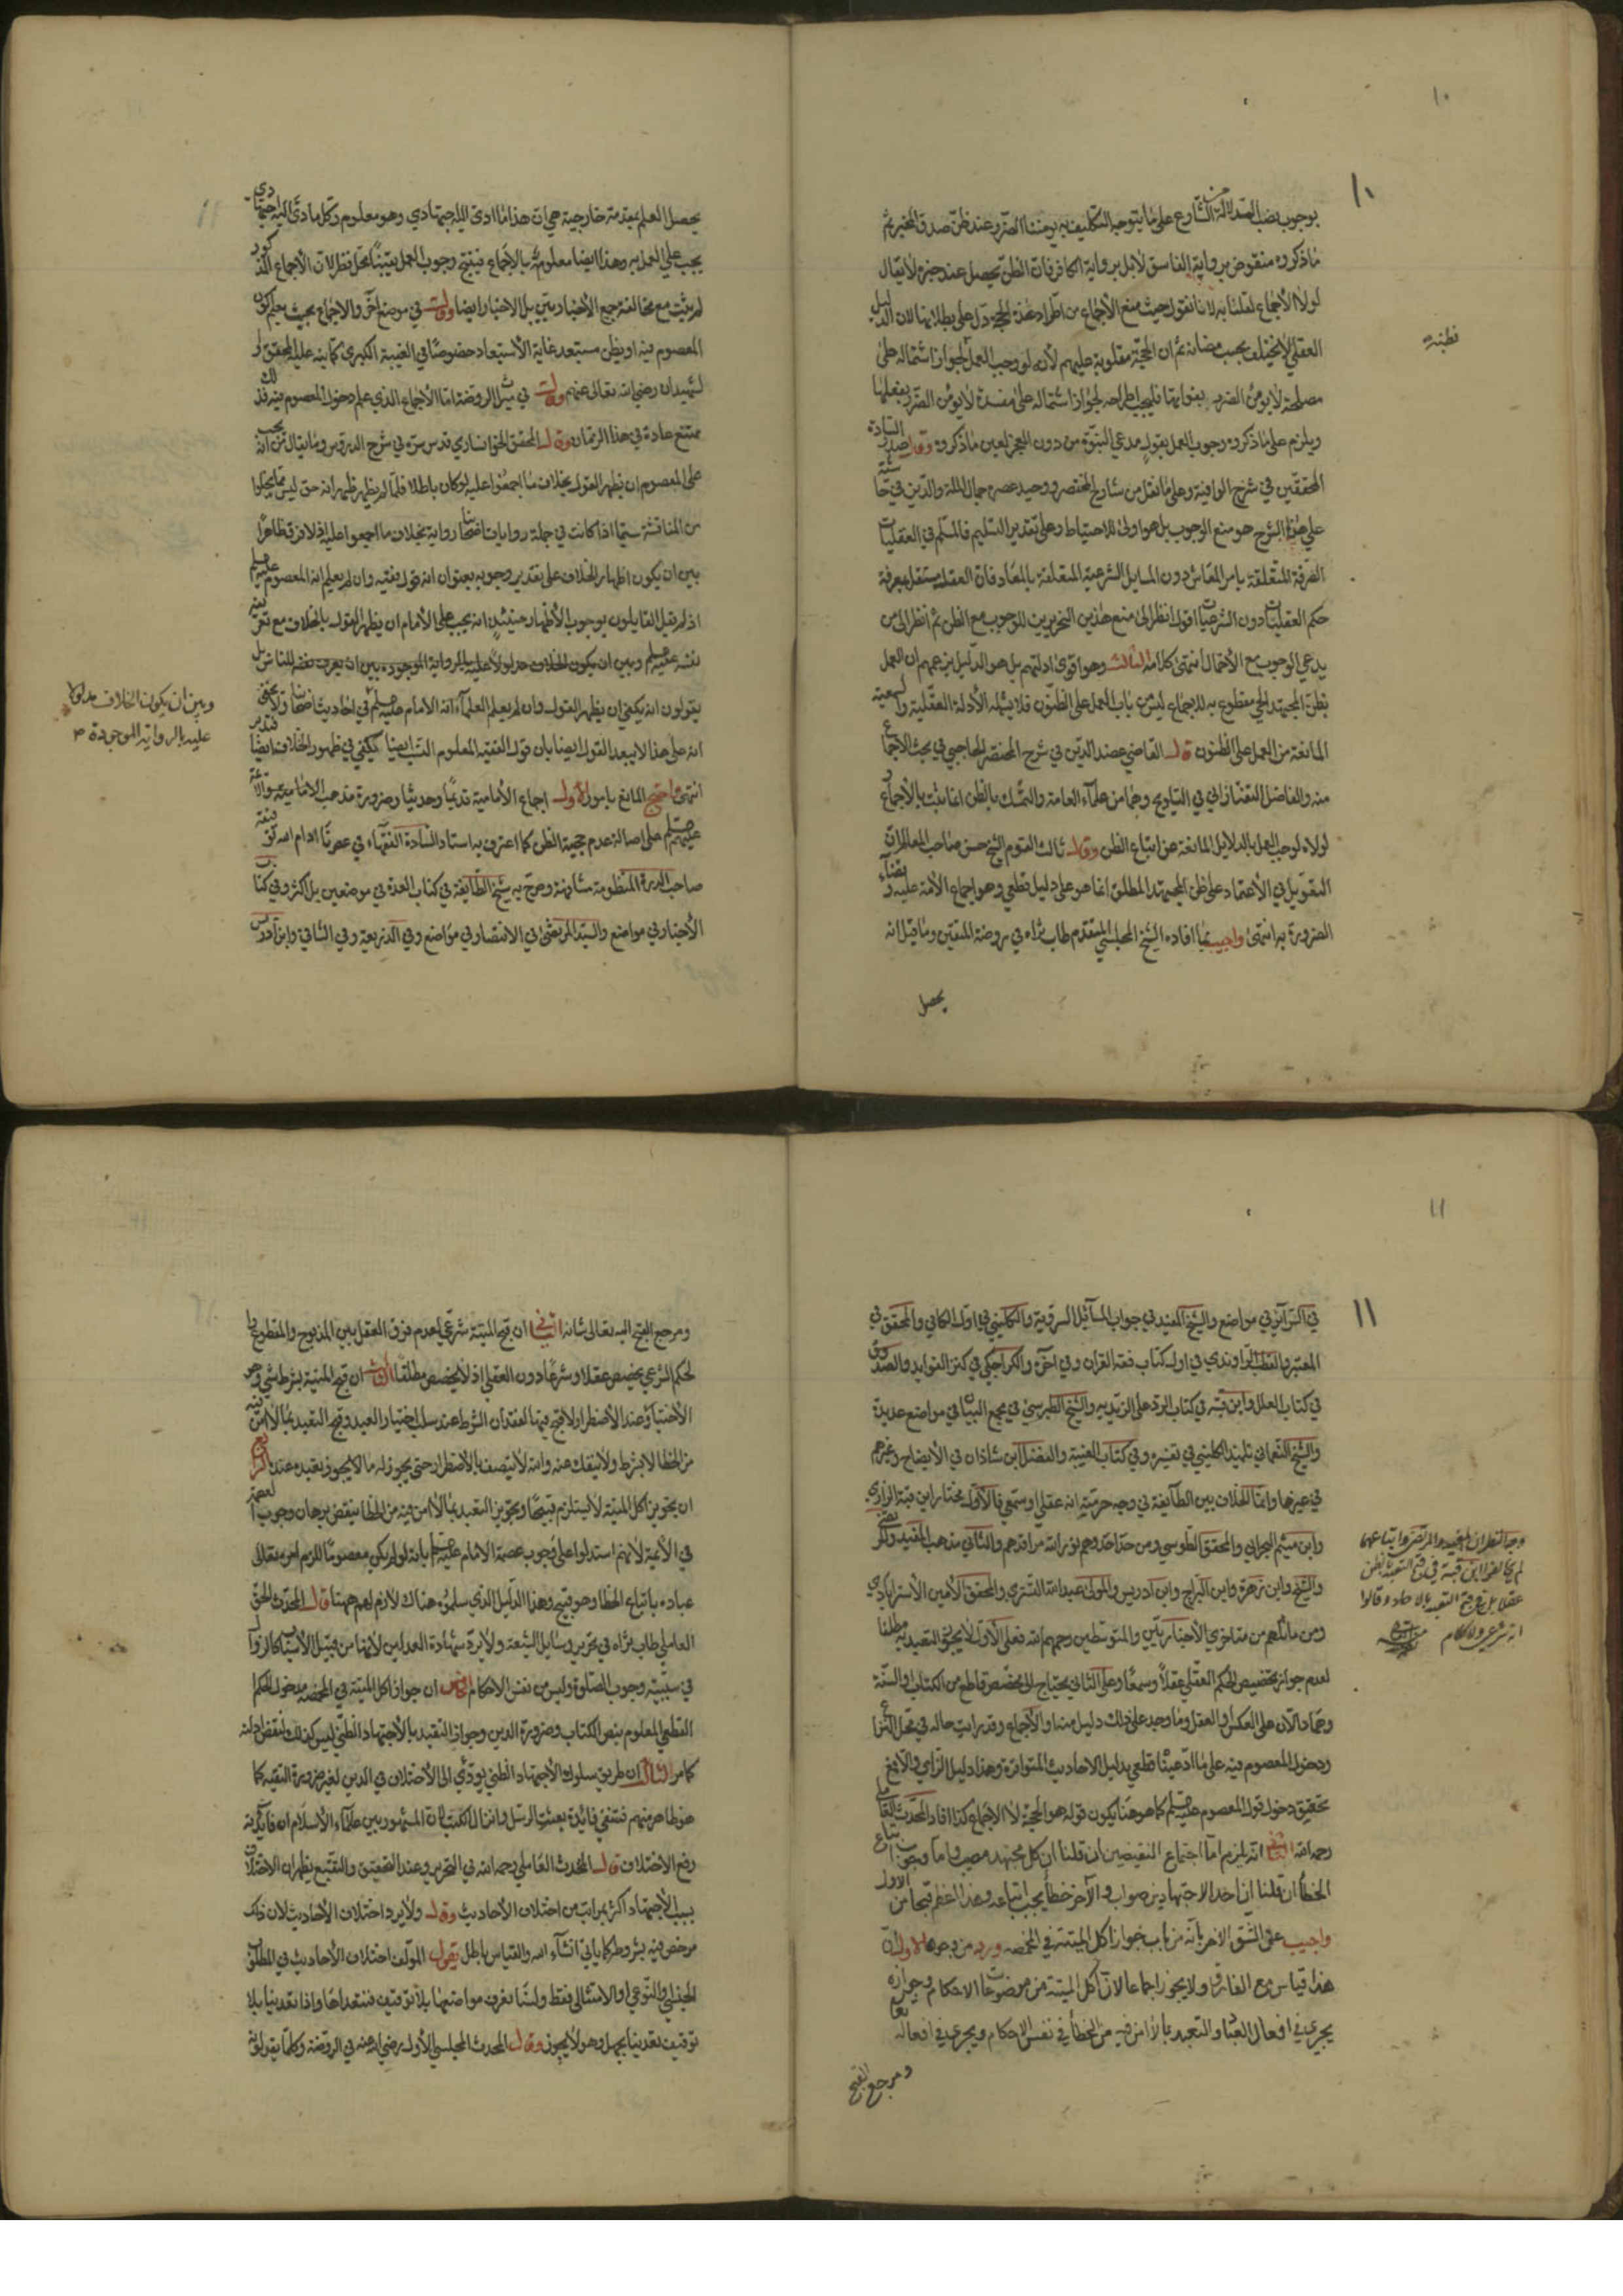 ١٠
١٠
بوجوب نصب الدلالة من الشارع على ما يتوجه التكليف به يومننا الضرر عند ظن صدق المخبر ثم
ما ذكروه منقوض برواية الفاسق لا بل برواية الكافر فان الظن يحصل عند خبره لا يقال
لولا الأجماع لقلنا به لانا نقول حيث منع الأجماع من اطراد هذه الحجة دل على بطلانها لان الدليل
العقلي لا يختلف بحسب مضانه ثم ان الحجة مقلوبة عليهم لأنه لو وجب العمل لجواز اشتماله على
مصلحة لا يؤمن الضرر بفواتها فليجب اطراحه لجواز اشتماله على مفسدة لا يؤمن الضرر بفعلها
ويلزم على ما ذكروه وجوب العمل بقول مدعي النبوة من دون المعجز لعين ما ذكروه وقال صدر السادة
المحققين في شرح الوافية وعلى ما نقل من شارح المختصر ووحيد عصره جمال الملة والدين في حاشيته
على هذا الشرح هو منع الوجوب بل هو اولى للاحتياط وعلى تقدير التسليم فالمسلم في العقليات
الصرفة المتعلقة بامر المعاش دون المسايل الشرعية المتعلقة بالمعاد فان العقل مستقل بمعرفة
حكم العقليات دون الشرعيات اقول انظر الى منع هذين النحريرين للوجوب مع الظن ثم انظر الى من
يدعي الوجوب مع الأحتمال انتهى كلامه الثالث وهو اقوى ادلتهم بل هو الدليل بزعمهم ان العمل
بظن المجتهد الحي مقطوع به للاجماع ليس من باب العمل على الظنون فلا يشمله الأدلة العقلية والسمعية
المانعة من العمل على الظنون قال القاضي عضد الدين في شرح المختصر الحاجبي في بحث الأجماع
منه والفاضل التفتازاني في التلويح وهما من علماء العامة والتمسك بالظن انما يثبت بالأجماع
لولاه لوجب العمل بالدلايل المانعة عن اتباع الظن وقال ثالث القوم الشيخ حسن صاحب المعالم ان
التعويل في الأعتماد على ظن المجتهد المطلق انما هو على دليل قطعي وهو اجماع الأمة عليه وقضاء
الضرورة به انتهى واجيب بما افاده الشيخ المجلسي المتقدم طاب ثراه في روضة المتقين وما قيل انه
يحصل
يحصل العلم بمقدمة خارجية هي ان هذا ما ادى اليه اجتهادي وهو معلوم وكل ما ادى اليه اجتهادي
يجب علي العمل به وهذا ايضا معلوم بالأجماع فينتج وجوب العمل يقينا محل نظر لان الأجماع المذكور
لم يثبت مع مخالفة جميع الأخباريين بل الاخبار ايضا وقال في موضع آخر والاجماع بحيث يعلم كون
المعصوم فيه او يظن مستبعد غاية الأستبعاد خصوصا في الغيبة الكبرى كما نبه عليه المحقق و
الشهيدان رضي الله تعالى عنهم وقال في ميراث الروضة اما الأجماع الذي علم دخول المعصوم فيه فذلك
ممتنع عادة في هذا الزمان وقال المحقق الخوانساري قدس سره في شرح الدروس وما يقال من انه يجب
على المعصوم ان يظهر القول بخلاف ما اجمعوا عليه لو كان باطلا فلما لم يظهر ظهر انه حق ليس مما يخلوا
من المناقشة سيما اذا كانت في جملة روايات اصحابنا رواية بخلاف ما اجمعوا عليه اذ لا فرق ظاهرا
بين ان يكون اظهار الخلاف على تقدير وجوبه بعنوان انه قول فقيه وان لم يعلم انه المعصوم عليه السلم
اذ لم يقل القايلون بوجوب الأظهار حينئذ انه يجب على الأمام ان يظهر القول بالخلاف مع تعريفه
نفسه عليه السلم وبين ان يكون الخلاف مدلولا عليه بالرواية الموجوده بين ان يعرف نفسه للناس بل
يقولون انه يكفي ان يظهر القول وان لم يعلم العلماء انه الامام عليه السلم في احاديث اصحابنا ولا يخفى
انه على هذا لا يبعد القول ايضا بان قول الفقيه المعلوم النسب ايضا يكفي في ظهور الخلاف ايضا فتدبر
انتهى واحتج المانع بامور الأول اجماع الأمامية قديما وحديثا وضرورة مذهب الامامية
عليهم السلم على اصالة عدم حجية الظن كما اعترف به استاد السادة الفقهاء في عصرنا ادام الله توفيقه
صاحب الدرة المنظومة مشافهة وصرح به شيخ الطايفة في كتاب العدة في موضعين بل اكثر وفي كتاب
الأخبار في مواضع والسيد المرتضى في الانتصار في مواضع وفي الذريعة وفي الشافي وابن ادريس
وبين ان يكون الخلاف مدلولا
عليه بالرواية الموجودة
١١
١١
في السرائر في مواضع والشيخ المفيد في جواب المسائل السروية والكليني في اول الكافي والمحقق في
المعتبر والقطب الراوندي في اول كتاب فقه القران وفي آخره والكراجكي في كنز الفوايد والصدوق
في كتاب العلل وابن قبه في كتاب الرد على الزيديه والشيخ الطبرسي في مجمع البيان في مواضع عديدة
والشيخ النعماني تلميذ الكليني في تفسيره وفي كتاب الغيبة والفضل ابن شاذان في الأيضاح وغيرهم
في غيرها وانما الخلاف بين الطائفة في وجه حرمته انه عقلي او سمعي فالأول مختار ابن قبة الرازي
وابن ميثم البحراني والمحقق الطوسي ومن حذا حذوهم نور الله مراقدهم والثاني مذهب المفيد والمرتضى
والشيخ وابن زهرة وابن البراج وابن ادريس والمولى عبد الله التستري والمحقق الأمين الأسترابادي
ومن ماثلهم من متاخري الأخباريين والمتوسطين رحمهم الله فعلى الأول لا يجوز التعبد به مطلقا
لعدم جواز تخصيص الحكم العقلي عقلا وسمعا وعلى الثاني يحتاج الى مخصص قاطع من الكتاب والسنة
وهما دالان على العكس او العقل وما وجد على ذلك دليل منه او الأجماع وقد رايت حاله في محل النزاع
ودخول المعصوم فيه على ما ادعينا قطعي بدليل الاحاديث المتواترة وهذا دليل الزامي والا فمع
تحقيق دخول قول المعصوم عليه السلم كما هو هنا يكون قوله هو الحجة لا الاجماع كذا افاد المحدث القاساني
رحمه الله الثاني انه يلزم اما اجتماع النقيضين ان قلنا ان كل مجتهد مصيب واما وجوب اتباع
الخطأ ان قلنا ان احد الاجتهادين صواب والآخر خطأ يجب اتباعه وهذا اعظم قبحا من الاول
واجيب على الشق الاخر بانه من باب جواز اكل الميتة في المخمصه ورد من وجوه الاول ان
هذا قياس مع الفارق ولا يجوز اجماعا لان اكل الميتة من موضوعات الاحكام وجوازه
يجري في افعال العباد والتعبد بما لا امن فيه من الخطأ في نفس الاحكام ويجري في افعاله تعالى
ومرجع القبح
لم يخالفوا ابن قبة في قبح التعبد بالظن
عقلا بل في قبح التعبد بالاحاد وقالوا
انه شرعي
ومرجع القبح اليه تعالى شانه الثاني ان قبح الميتة شرعي لعدم فرق العقل بين المذبوح والمقطوع
الحكم الشرعي يخصص عقلا وشرعا دون العقلي اذ لا يخصص مطلقا الثالث ان قبح الميتة بشرط شيء وهو
الأختيار وعند الأضطرار لا قبح فيها لفقدان الشرط عند سلب اختيار العبد وقبح التعبد بما لا امن فيه
من الخطا لا بشرط ولا ينفك عنه وانه لا يتصف بالأضطرار حتى يجوز له ما لا يجوز بعيده عنده الرابع
ان تجويز اكل الميتة لا يستلزم قبيحا وتجويز التعبد بما لا امن فيه من الخطا ينقض برهان وجوب العصمة
في الأئمة لأنهم استدلوا على وجوب عصمة الامام عليه السلم بانه لو لم يكن معصوما للزم امره تعالى
عباده باتباع الخطا وهو قبيح وهذا الدليل الذي سلموه هناك لازم لهم ههنا قال المحدث الحر
العاملي طاب ثراه في تحرير وسايل الشيعة ولا يرد شهادة العدلين لأنها من قبيل الأسباب كالزوال
في سببيته وجوب الصلوة وليس من نفس الاحكام الخامس ان جواز اكل الميتة في المخمصه مدخول الحكم
القطعي المعلوم بنص الكتاب وضرورة الدين وجواز التعبد بالأجتهاد الظني ليس كذلك
كما مر الثالث ان طريق سلوك الأجتهاد الظني يودي الى الأختلاف في الدين لغير ضرورة التقية كما
هو ظاهر منهم فتنتفي فائدة بعثت الرسل وانزال الكتب فان المشهور بين علماء الأسلام ان فائدته
رفع الاختلاف قال المحدث العاملي رحمه الله في التحرير وعند التحقيق والتتبع يظهر ان الاختلاف
بسبب الأجتهاد اكثر بمراتب من اختلاف الأحاديث وقال ولا يرد اختلاف الأحاديث لان ذلك
مرخص فيه بشروط كما ياتي انشاء الله والقياس باطل يقول المولف اختلاف الأحاديث في المطلق
الجنسي والنوعي او الامتثالي فقط ولسنا نعرف مواضعها بلا توقيف فنتعداها واذا تعدينا بلا
توقيف تعدينا بجهل وهو لا يجوز وقال المحدث المجلسي الأول رضي الله عنه في الروضة وكلما يقولون